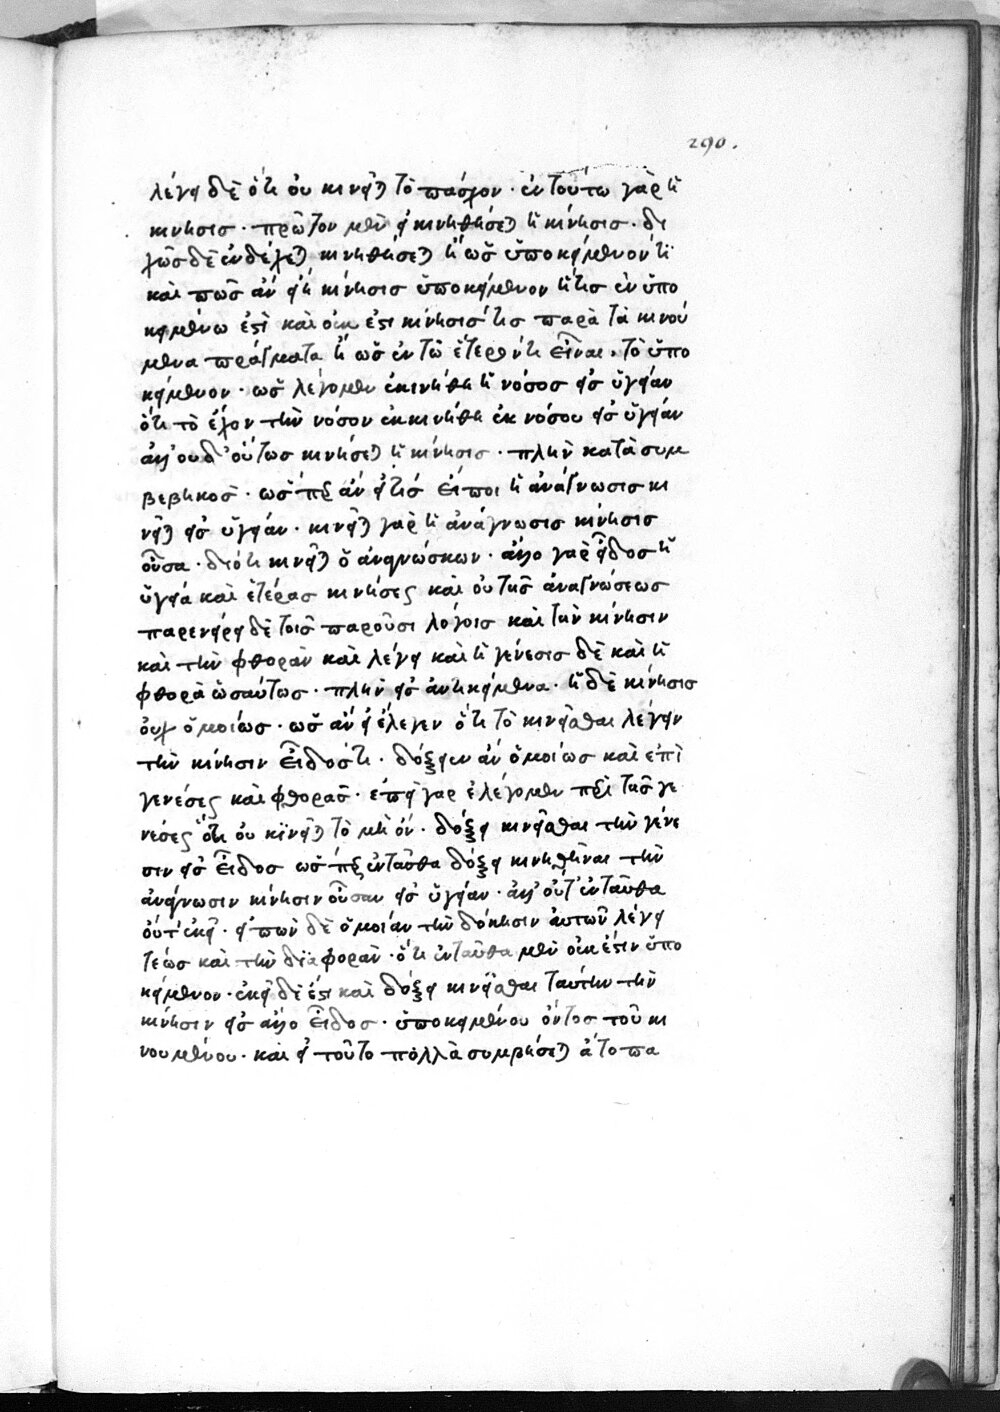 290.
λέγει δὲ ὅτι οὐ κινεῖται τὸ πάσχον · ἐν τούτω γὰρ ἡ
κίνησις · πρῶτον μὲν εἰ κινηθήσεται ἡ κίνησις · δι
χῶς δὲ ἐνδέχεται κινηθήσεται ἢ ὡς ὑποκείμενόν τι
καὶ πῶς ἂν εἴη κίνησις ὑποκείμενον ἥτις ἐν ὑπο
κειμένω ἐστὶ καὶ οὐκ ἔστι κίνησίς τις παρὰ τὰ κινού
μενα πράγματα ἢ ὡς ἐν τῶ ἕτερόν τι εἶναι · τὸ ὑπο
κείμενον · ὡς λέγομεν ἐκινήθη ἡ νόσος εἰς ὑγείαν
ὅτι τὸ ἔχον τὴν νόσον ἐκκινήθη ἐκ νόσου εἰς ὑγείαν
ἀλλ' οὐδ' οὕτως κινήσεται ἡ κίνησις · πλὴν κατὰ συμ
βεβηκός · ὥσπερ ἂν εἴ τις εἴποι ἡ ἀνάγνωσις κι
νεῖται εἰς ὑγείαν · κινεῖται γὰρ ἡ ἀνάγνωσις κίνησις
οὖσα · διότι κινεῖται ὁ ἀναγινώσκων · ἄλλο γὰρ εἶδος ἡ
ὑγεία καὶ ἑτέρας κινήσεως καὶ οὐ τῆς ἀναγνώσεως
παρενείρει δὲ τοῖς παροῦσι λόγοις καὶ τὴν κίνησιν
καὶ τὴν φθορὰν καὶ λέγει καὶ ἡ γένεσις δὲ καὶ ἡ
φθορὰ ὡσαύτως · πλὴν εἰς ἀντικείμενα · ἡ δὲ κίνησις
οὐχ ὁμοίως · ὡς ἂν εἰ ἔλεγεν ὅτι τὸ κινεῖσθαι λέγειν
τὴν κίνησιν εἶδός τι · δόξειεν ἂν ὁμοίως καὶ ἐπὶ
γενέσεως καὶ φθορᾶς · ἐπεὶ γὰρ ἐλέγομεν περὶ τῆς γε
νέσεως ὅτι οὐ κινεῖται τὸ μὴ ὄν · δόξει κινεῖσθαι τὴν γένε
σιν εἰς εἶδος ὥσπερ ἐνταῦθα δόξει κινηθῆναι τὴν
ἀνάγνωσιν κίνησιν οὖσαν εἰς ὑγείαν · ἀλλ' οὔτ' ἐνταῦθα
οὔτ' ἐκεῖ · εἰπὼν δὲ ὁμοίαν τὴν δόκησιν αὐτῶν λέγει
τέως καὶ τὴν διαφοράν · ὅτι ἐνταῦθα μὲν οὐκ ἔστιν ὑπο
κείμενον · ἐκεῖ δὲ ἔστι καὶ δόξει κινεῖσθαι ταύτην τὴν
κίνησιν εἰς ἄλλο εἶδος · ὑποκειμένου ὄντος τοῦ κι
νουμένου · καὶ εἰ τοῦτο πολλὰ συμβήσεται ἄτοπα